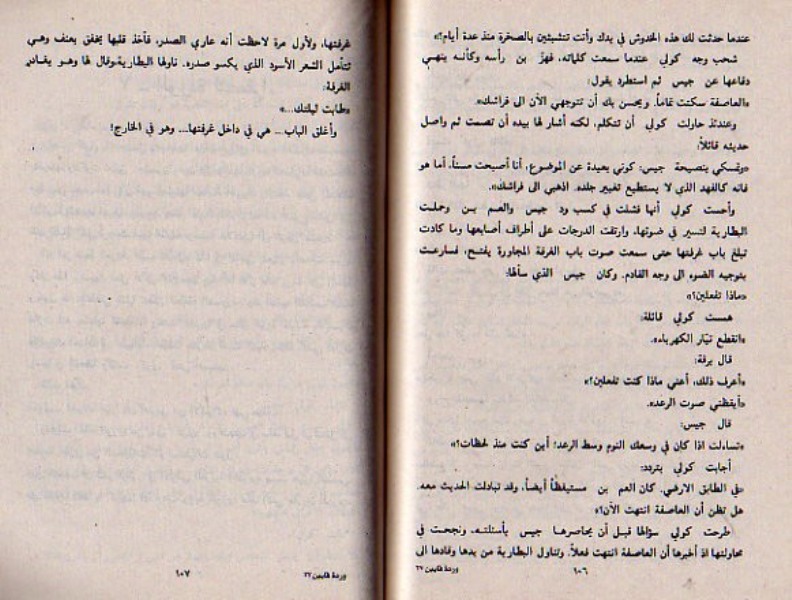 عندما حدثت لك هذه الخدوش في يدك وأنت تتشبثين بالصخرة منذ عدة أيام؟»
شحب وجه كولي عندما سمعت كلماته، فهزّ بن رأسه وكأنه ينهي
دفاعها عن جيس ثم استطرد يقول:
«العاصفة سكنت تماماً، ويحسن بك أن تتوجهي الآن الى فراشك».
وعندئذ حاولت كولي أن تتكلم، لكنه أشار لها بيده أن تصمت ثم واصل
حديثه قائلاً:
«وتمسكي بنصيحة جيس: كوني بعيدة عن الموضوع، أنا أصبحت مسناً، أما هو
فانه كالفهد الذي لا يستطيع تغيير جلده. اذهبي الى فراشك».
وأحست كولي أنها فشلت في كسب ود جيس والعم بن وحملت
البطارية لتسير في ضوئها، وارتقت الدرجات على أطراف أصابعها وما كادت
تبلغ باب غرفتها حتى سمعت صوت باب الغرفة المجاورة يفتح، فسارعت
بتوجيه الضوء الى وجه القادم. وكان جيس الذي سألها:
«ماذا تفعلين؟»
همست كولي قائلة:
«انقطع تيّار الكهرباء».
قال برقة:
«أعرف ذلك، أعني ماذا كنت تفعلين؟»
«أيقظني صوت الرعد».
قال جيس:
«تساءلت اذا كان في وسعك النوم وسط الرعد؛ أين كنت منذ لحظات؟»
أجابت كولي بتردد:
«في الطابق الارضي. كان العم بن مستيقظاً أيضاً، وقد تبادلت الحديث معه.
هل تظن أن العاصفة انتهت الآن؟»
طرحت كولي سؤالها قبل أن يحاصرها جيس بأسئلته، ونجحت في
محاولتها اذ أخبرها أن العاصفة انتهت فعلاً. وتناول البطارية من يدها وقادها الى
١٠٦
وردة قايين ٢٧
غرفتها، ولأول مرة لاحظت أنه عاري الصدر، فأخذ قلبها يخفق بعنف وهي
تتأمل الشعر الأسود الذي يكسو صدره. ناولها البطارية وقال لها وهو يغادر
الغرفة:
«طابت ليلتك...»
وأغلق الباب... هي في داخل غرفتها... وهو في الخارج!
١٠٧
وردة قايين ٢٧